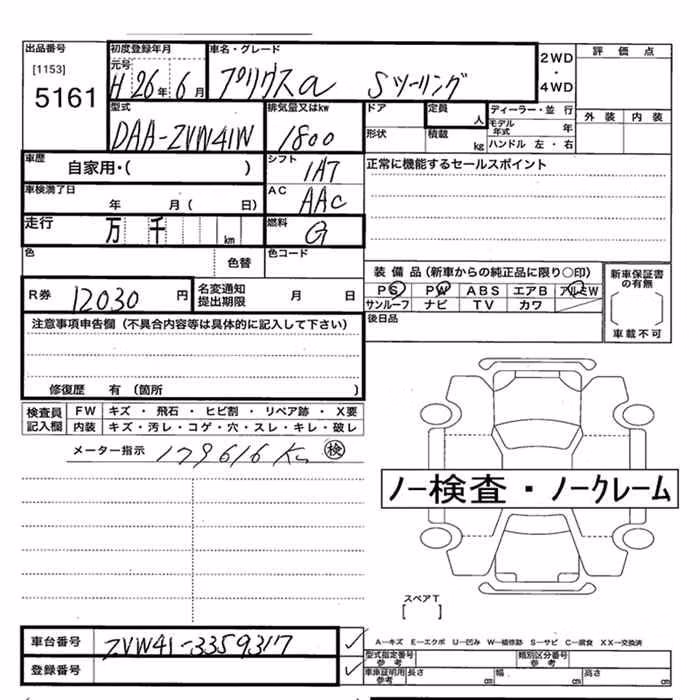 出品番号
[1153]
5161
初度登録年月
元号
H 26年 6月
車名・グレード
プリウスα Sツーリング
2WD
・
4WD
評価点
外装 内装
型式
DAA-ZVW41W
排気量又はkw
1800
ドア
形状
定員
人
積載
kg
ディーラー・並行
モデル年式 年
ハンドル 左・右
車歴
自家用・( )
シフト
IAT
正常に機能するセールスポイント
車検満了日
年 月( 日)
AC
AAC
走行
万 千 km
燃料
G
色
色替
色コード
装備品(新車からの純正品に限り○印)
PS PW ABS エアB アルミW
サンルーフ ナビ TV カワ
新車保証書の有無
車載不可
R券
12030円
名変通知
提出期限
月 日
後日品
注意事項申告欄(不具合内容等は具体的に記入して下さい)
修復歴 有(箇所 )
検査員
記入欄
FW キズ・飛石・ヒビ割・リペア跡・X要
内装 キズ・汚レ・コゲ・穴・スレ・キレ・破レ
メーター指示 179616 Km 検
ノー検査・ノークレーム
スペアT
[ ]
車台番号
ZVW41-3359317
登録番号
A−キズ E−エクボ U−凹み W−補修跡 S−サビ C−腐食 XX−交換済
型式指定番号
参考
類別区分番号
参考
車庫証明用
参考
長さ cm 幅 cm 高さ cm